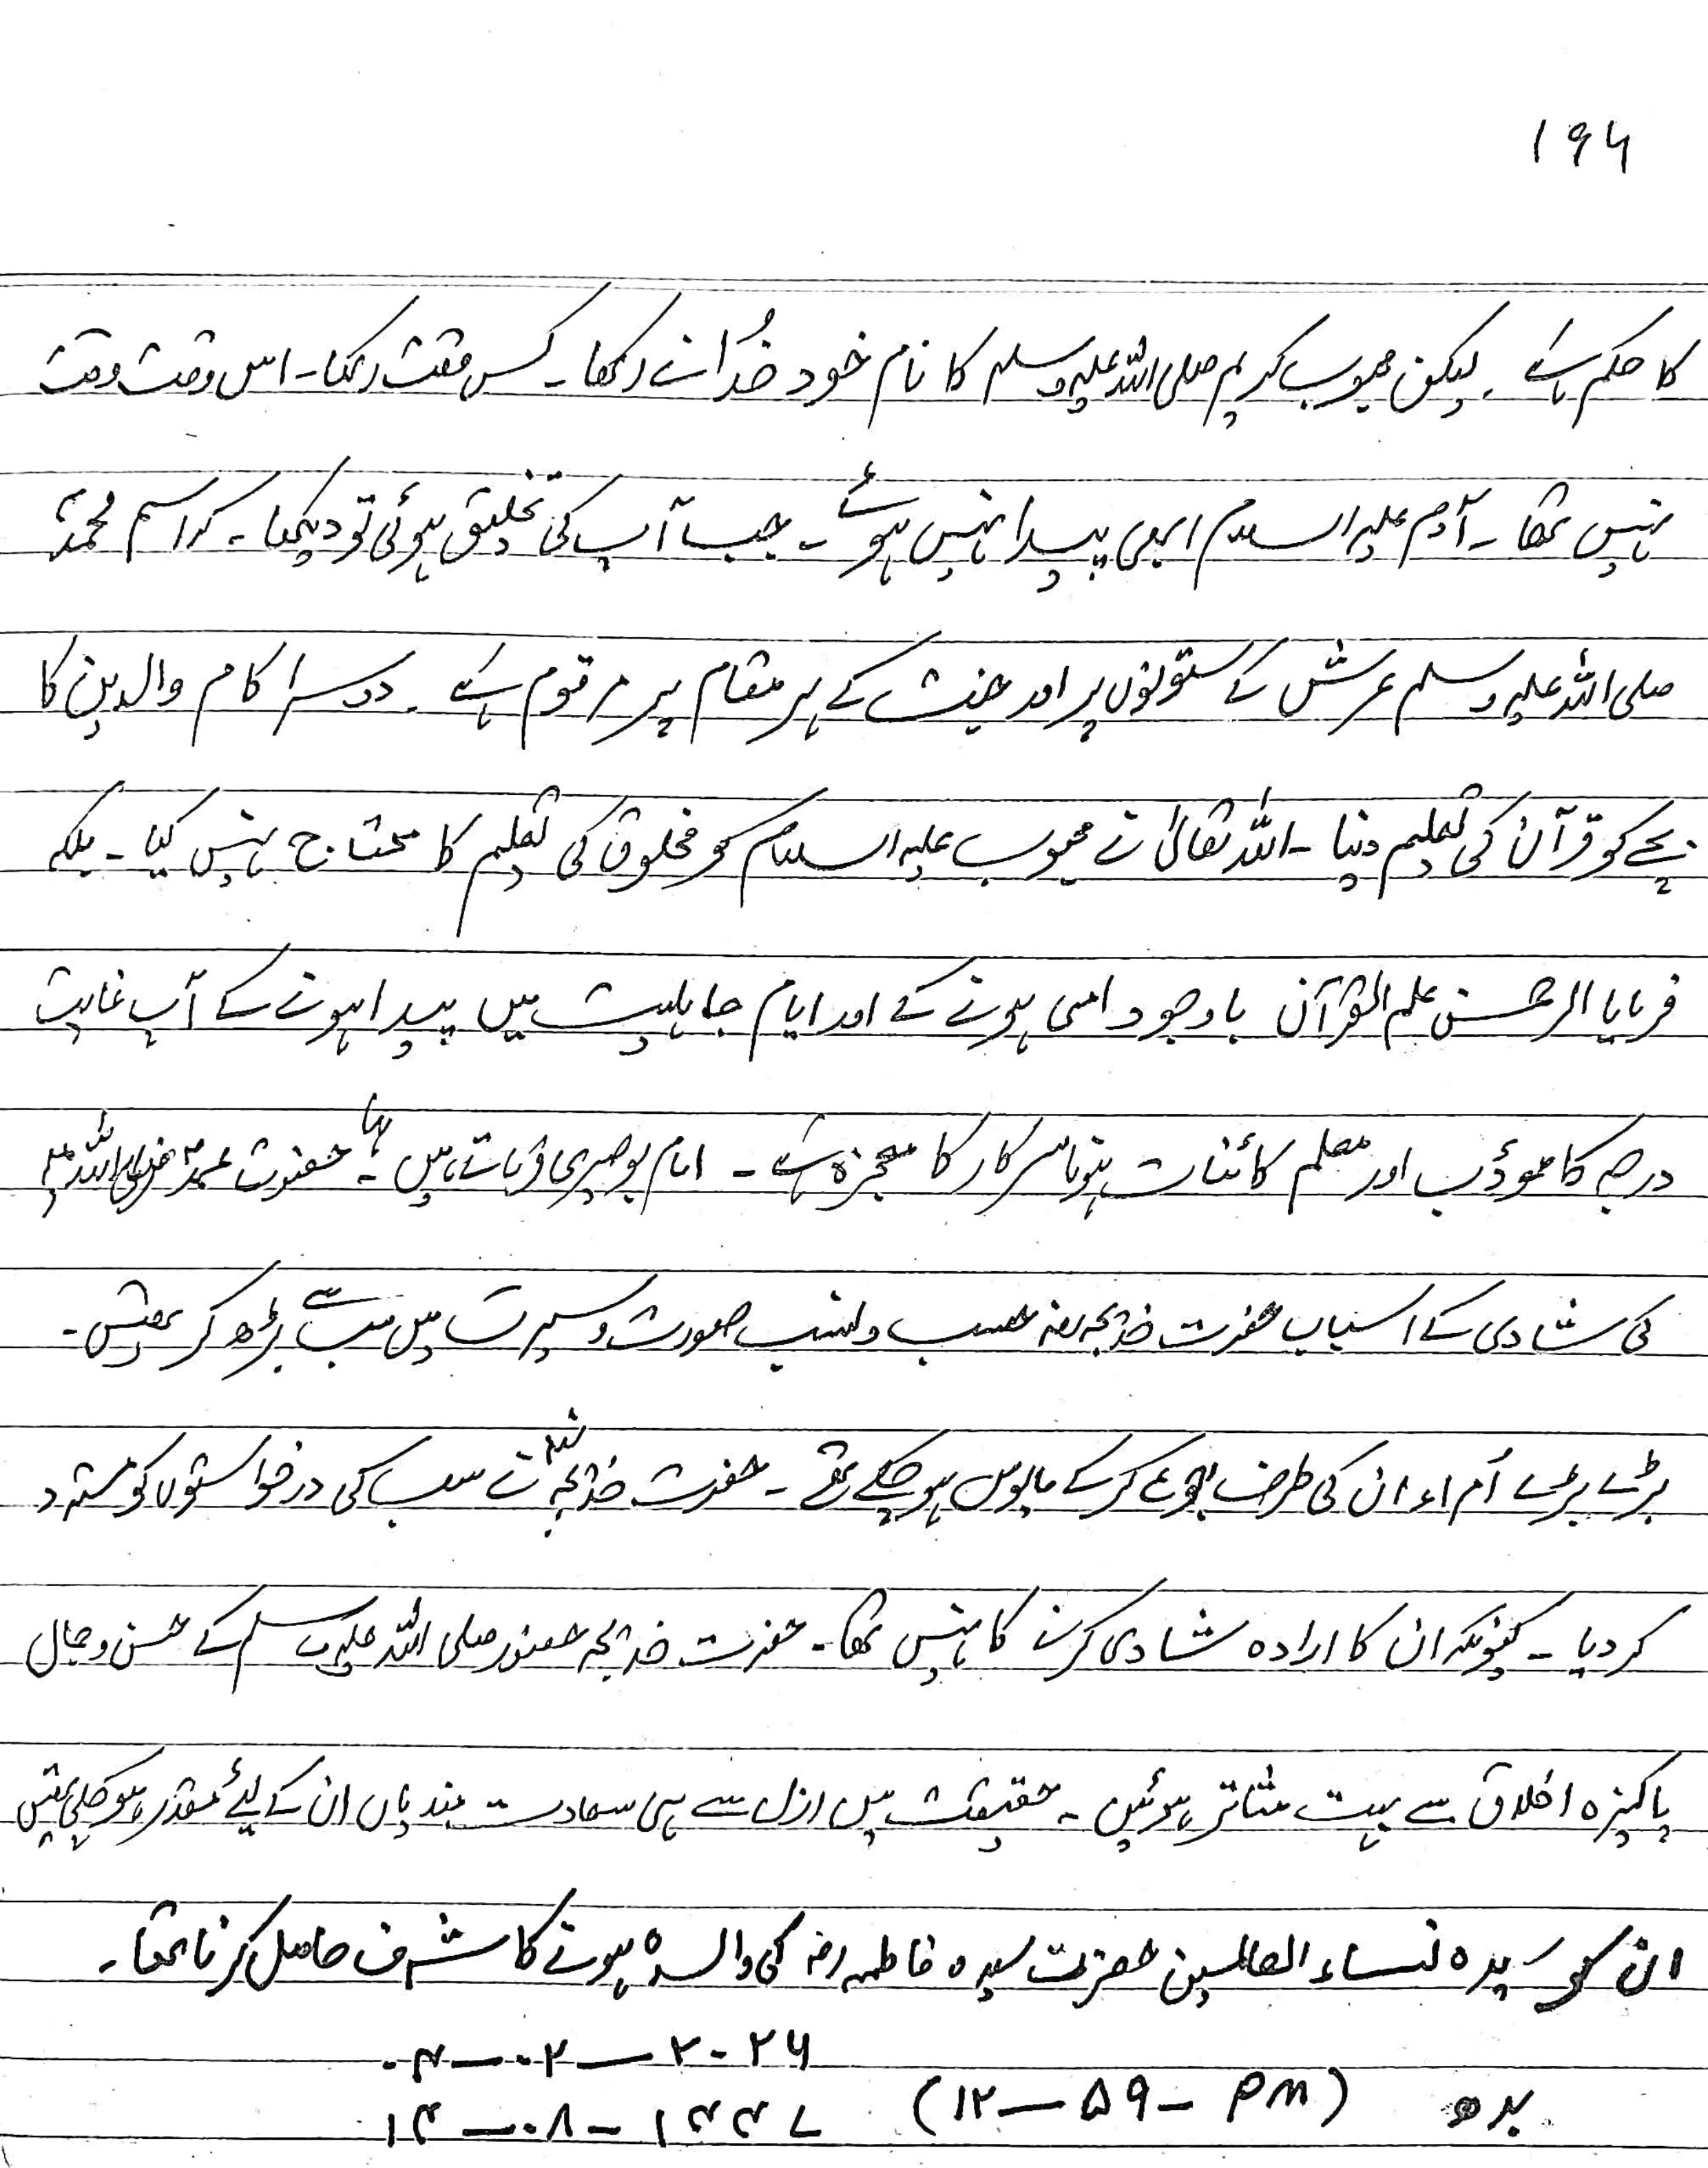 ۱۹۶
کا حکم ہے۔ لیکن محبوب کریم صلی اللہ علیہ وسلم کا نام خود خُدا نے رکھا۔ کس وقت رکھا۔ اس وقت وقت
نہیں تھا۔ آدم علیہ السلام ابھی پیدا نہیں ہوئے۔ جب آپ کی تخلیق ہوئی تو دیکھا۔ کہ اسم محمدؐ
صلی اللہ علیہ وسلم عرش کے ستونوں پر اور جنت کے ہر مقام پر مرقوم ہے۔ دوسرا کام والدین کا
بچے کو قرآن کی تعلیم دینا۔ اللہ تعالیٰ نے محبوب علیہ السلام کو مخلوق کی تعلیم کا محتاج نہیں کیا۔ بلکہ
فرمایا الرحمن علم القرآن باوجود امی ہونے کے اور ایام جاہلیت میں پیدا ہونے کے آپ غایت
درجہ کا مؤدب اور معلم کائنات ہونا سرکار کا معجزہ ہے۔ امام بوصیری فرماتے ہیں۔ حضرت محمد صلی اللہ علیہ
کی شادی کے اسباب حضرت خدیجہ رضہ حسب و نسب صورت و سیرت میں سب سے بڑھ کر تھیں۔
بڑے بڑے اُمراء ان کی طرف رجوع کر کے مایوس ہو چکے تھے۔ حضرت خدیجہ نے سب کی درخواستوں کو مسترد
کر دیا۔ کیونکہ ان کا ارادہ شادی کرنے کا نہیں تھا۔ حضرت خدیجہ حضور صلی اللہ علیہ وسلم کے حسن و جمال
پاکیزہ اخلاق سے بہت متاثر ہوئیں۔ حقیقت میں ازل سے ہی سعادت مندیاں ان کے لیئے مقدر ہو چکی تھیں
ان کو سیدہ نساء العالمین حضرت سیدہ فاطمہ رضہ کی والدہ ہونے کا شرف حاصل کرنا تھا۔
۰۴-۰۲-۲۰۲۶
بدھ (۱۲-۵۹- PM) ۱۴-۰۸-۱۴۴۷